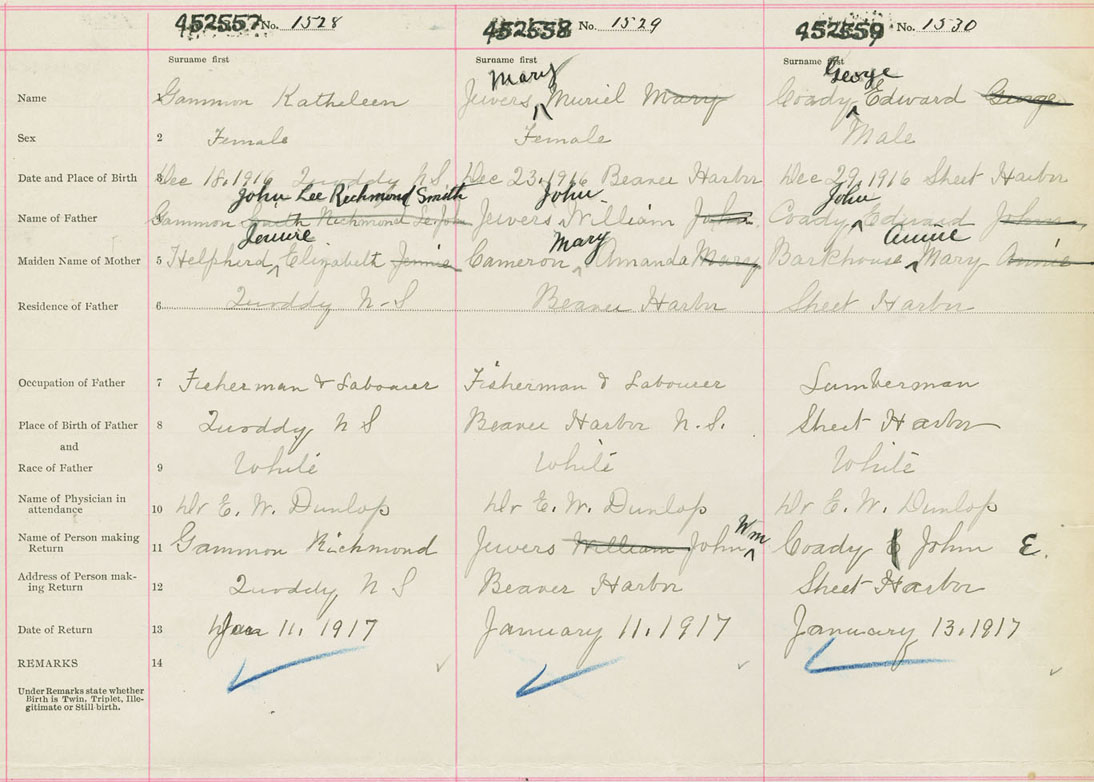 452557 No. 1528 452558 No. 1529 452559 No. 1530
Surname first Surname first Surname first
Mary George
Name Gammon Katheleen Jewers ^ Muriel Mary Coady ^ Edward George
Sex 2 Female Female Male
Date and Place of Birth 3 Dec 18, 1916 Quoddy N.S. Dec 23, 1916 Beaver Harbor Dec 29, 1916 Sheet Harbor
John Lee Richmond Smith John John
Name of Father Gammon Smith Richmond Lee John Jewers William John Coady ^ Edward John
Jennie Mary Annie
Maiden Name of Mother 5 Helpherd ^ Elizabeth Jennie Cameron ^ Amanda Mary Barkhouse ^ Mary Annie
Residence of Father 6 Quoddy N-S Beaver Harbor Sheet Harbor
Occupation of Father 7 Fisherman & Labourer Fisherman & Labourer Lumberman
Place of Birth of Father 8 Quoddy N S Beaver Harbor N.S. Sheet Harbor
and
Race of Father 9 White White White
Name of Physician in
attendance 10 Dr E. W. Dunlop Dr E. W. Dunlop Dr E. W. Dunlop
Wm
Name of Person making
Return 11 Gammon Richmond Jewers William John ^ Coady E John E.
Address of Person mak-
ing Return 12 Quoddy N S Beaver Harbor Sheet Harbor
Date of Return 13 Jan 11, 1917 January 11, 1917 January 13, 1917
REMARKS 14
Under Remarks state whether
Birth is Twin, Triplet, Ille-
gitimate or Still-birth.